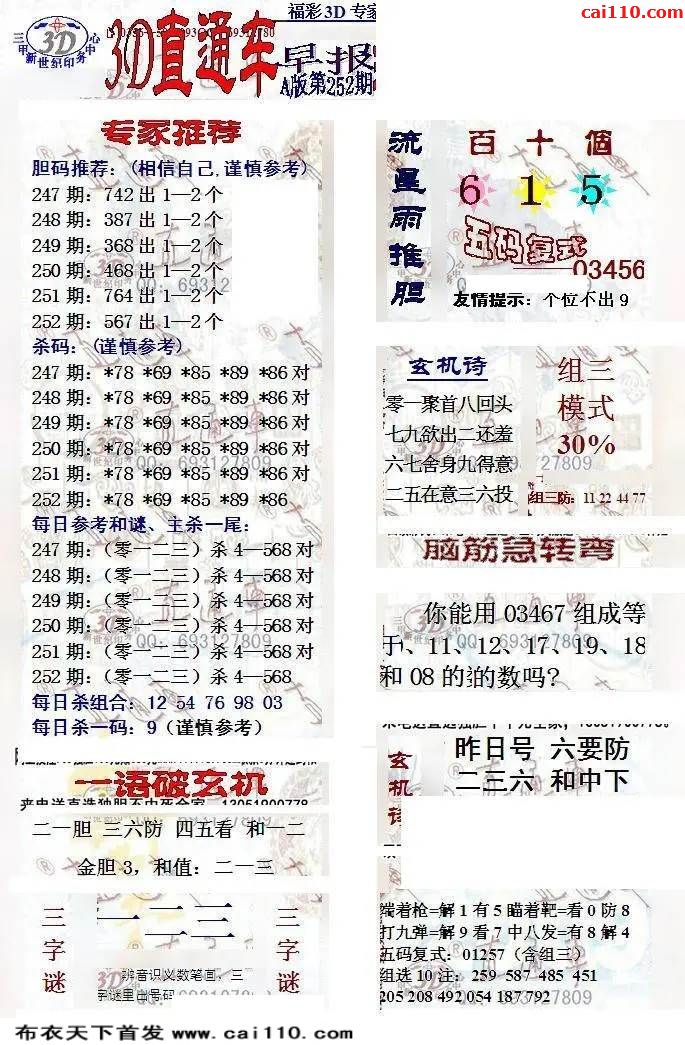 cai110.com
福彩3D 专家
三甲 3D 中心
新世纪印务
3D直通车
早报
A版第252期
专家推荐
胆码推荐：(相信自己,谨慎参考)
247 期：742 出 1—2 个
248 期：387 出 1—2 个
249 期：368 出 1—2 个
250 期：468 出 1—2 个
251 期：764 出 1—2 个
252 期：567 出 1—2 个
杀码：(谨慎参考)
247 期：*78 *69 *85 *89 *86 对
248 期：*78 *69 *85 *89 *86 对
249 期：*78 *69 *85 *89 *86 对
250 期：*78 *69 *85 *89 *86 对
251 期：*78 *69 *85 *89 *86 对
252 期：*78 *69 *85 *89 *86
每日参考和谜、主杀一尾：
247 期：（零一二三）杀 4—568 对
248 期：（零一二三）杀 4—568 对
249 期：（零一二三）杀 4—568 对
250 期：（零一二三）杀 4—568 对
251 期：（零一二三）杀 4—568 对
252 期：（零一二三）杀 4—568
每日杀组合：12 54 76 98 03
每日杀一码：9（谨慎参考）
一语破玄机
二一胆 三六防 四五看 和一二
金胆 3，和值：二一三
三字谜
一二三
三字谜
辨音识义数笔画，三
字谜里出号码
流星雨推胆
百 十 個
6 1 5
五码复式
03456
友情提示：个位不出 9
玄机诗
零一聚首八回头
七九欲出二还羞
六七舍身九得意
二五在意三六投
组三
模式
30%
组三防：11 22 44 77
脑筋急转弯
你能用 03467 组成等
于、11、12、17、19、18
和 08 的的数吗?
玄机诗
昨日号 六要防
二三六 和中下
端着枪=解 1 有 5 瞄着靶=看 0 防 8
打九弹=解 9 看 7 中八发=有 8 解 4
五码复式：01257（含组三）
组选 10 注：259 587 485 451
205 208 492 054 187 792
布衣天下首发 www.cai110.com